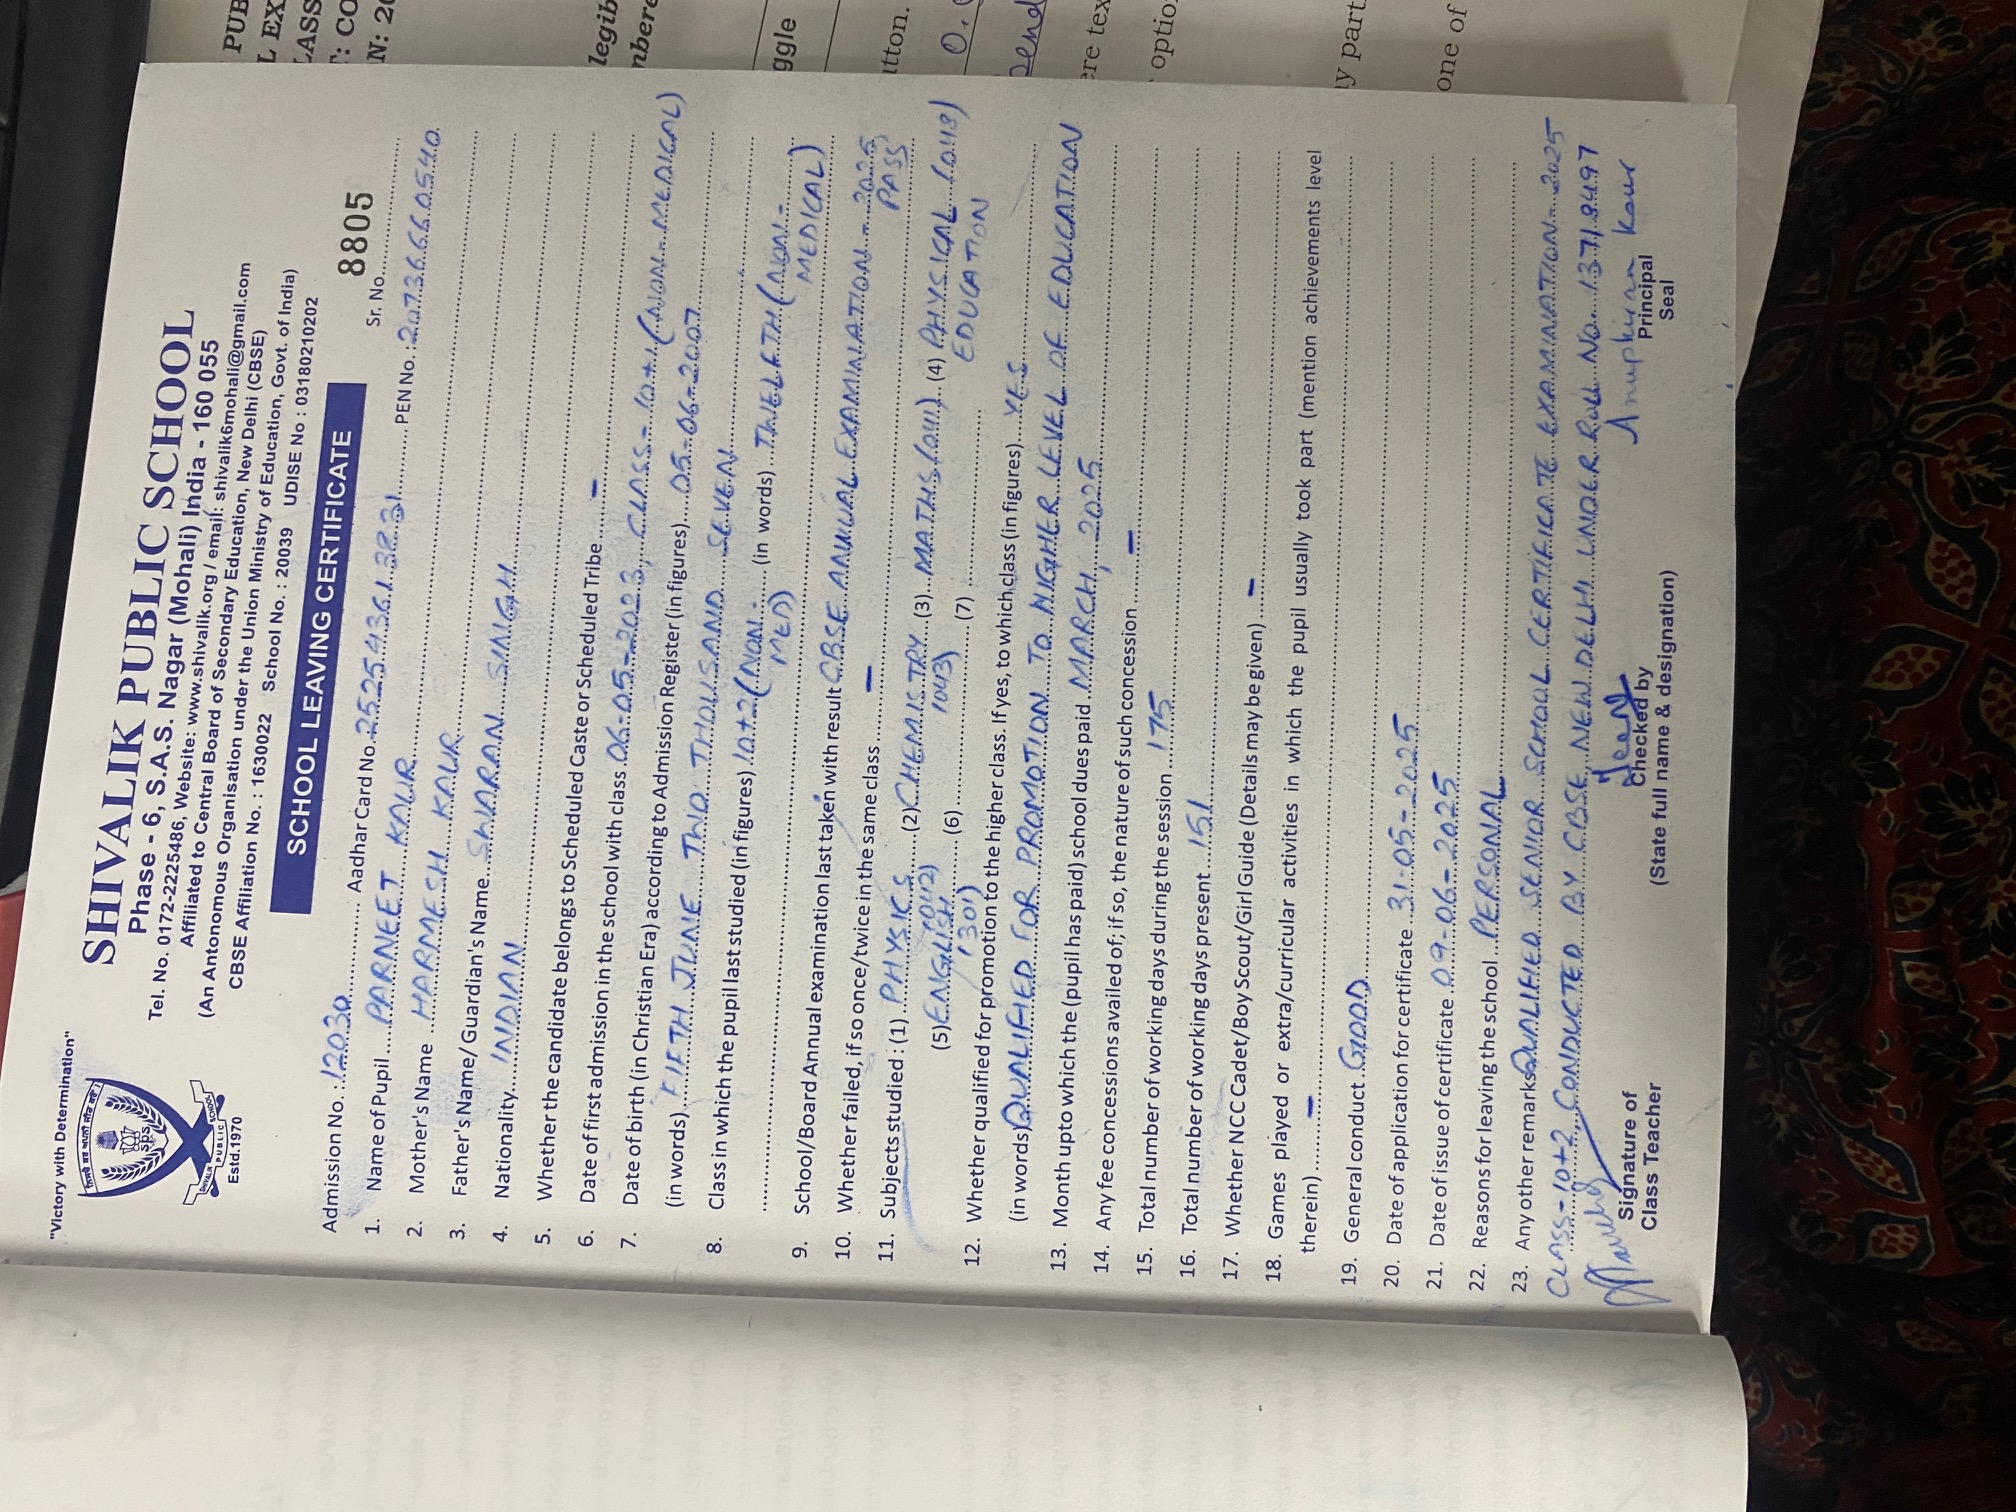 "Victory with Determination"
SHIVALIK PUBLIC SCHOOL
Phase - 6, S.A.S. Nagar (Mohali) India - 160 055
Tel. No. 0172-2225486, Website: www.shivalik.org / email: shivalik6mohali@gmail.com
Affiliated to Central Board of Secondary Education, New Delhi (CBSE)
(An Autonomous Organisation under the Union Ministry of Education, Govt. of India)
CBSE Affiliation No. : 1630022 School No. : 20039 UDISE No : 03180210202
SHIVALIK PUBLIC SCHOOL
Estd.1970
SCHOOL LEAVING CERTIFICATE
Sr. No. 8805
Admission No. 12030 Aadhar Card No. 252543613831 PEN No. : 20736660540
1. Name of Pupil PARNEET KAUR
2. Mother's Name HARMESH KAUR
3. Father's Name/ Guardian's Name SHARAN SINGH
4. Nationality INDIAN
5. Whether the candidate belongs to Scheduled Caste or Scheduled Tribe –
6. Date of first admission in the school with class 06-05-2023, CLASS-10+1 (NON-MEDICAL)
7. Date of birth (in Christian Era) according to Admission Register (in figures) 05-06-2007
(in words) FIFTH JUNE TWO THOUSAND SEVEN
8. Class in which the pupil last studied (in figures) 10+2 (NON- (in words) TWELFTH (NON-
MED) MEDICAL)
9. School/Board Annual examination last taken with result CBSE ANNUAL EXAMINATION-2025
PASS
10. Whether failed, if so once/twice in the same class –
11. Subjects studied : (1) PHYSICS (2) CHEMISTRY (3) MATHS (041) (4) PHYSICAL (048)
(042) (043) EDUCATION
(5) ENGLISH (6) (7)
(301)
12. Whether qualified for promotion to the higher class. If yes, to which class (in figures) YES
(in words) QUALIFIED FOR PROMOTION TO HIGHER LEVEL OF EDUCATION
13. Month upto which the (pupil has paid) school dues paid MARCH, 2025
14. Any fee concessions availed of; if so, the nature of such concession –
15. Total number of working days during the session 175
16. Total number of working days present 151
17. Whether NCC Cadet/Boy Scout/Girl Guide (Details may be given) –
18. Games played or extra/curricular activities in which the pupil usually took part (mention achievements level
therein) –
19. General conduct GOOD
20. Date of application for certificate 31-05-2025
21. Date of issue of certificate 09-06-2025
22. Reasons for leaving the school PERSONAL
23. Any other remarks QUALIFIED SENIOR SCHOOL CERTIFICATE EXAMINATION-2025
CLASS-10+2 CONDUCTED BY CBSE, NEW DELHI UNDER Roll No. 13718497
Anupkiran Kaur
Signature of Checked by Principal
Class Teacher (State full name & designation) Seal
PUB
L EX
LASS
T: CO
N: 20
legib
nbere
ggle
utton.
ere tex
option
ny part
one of